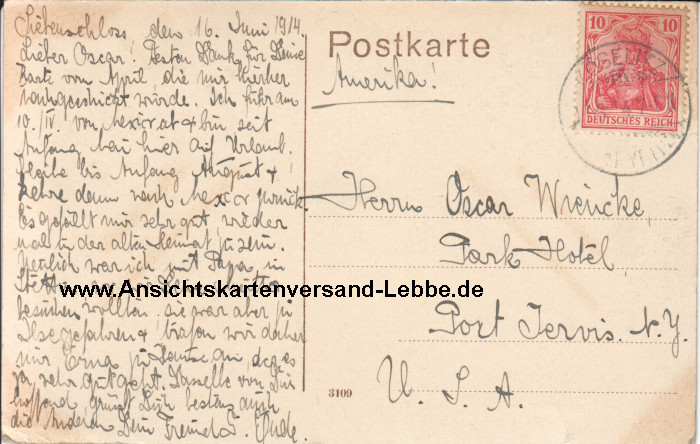 Liebenschloss, den 16. Juni 1914
Lieber Oscar! Besten Dank für Deine
Karte von April, die mir hierher
nachgeschickt wurde. Ich fuhr am
10./IV. von ab & bin seit
Anfang Mai hier auf Urlaub.
bleibe bis Anfang August &
kehre dann nach zurück.
Es gefällt mir sehr gut, wieder
mal in der alten Heimat zu sein.
Neulich war ich mit Papa in
besuchen wollten; sie war aber zu
Ilse gefahren & trafen wir daher
nur Erna zu Hause an, der es
ja sehr gut geht. Dasselbe von Dir
hoffend, grüsst Dich bestens auch
die Anderen Dein Freund
Postkarte
Amerika!
10 10
DEUTSCHES REICH
Herrn Oscar Wiencke,
Park Hotel
Port Jervis. N.Y.
U. S. A.
www.Ansichtskartenversand-Lebbe.de
3109